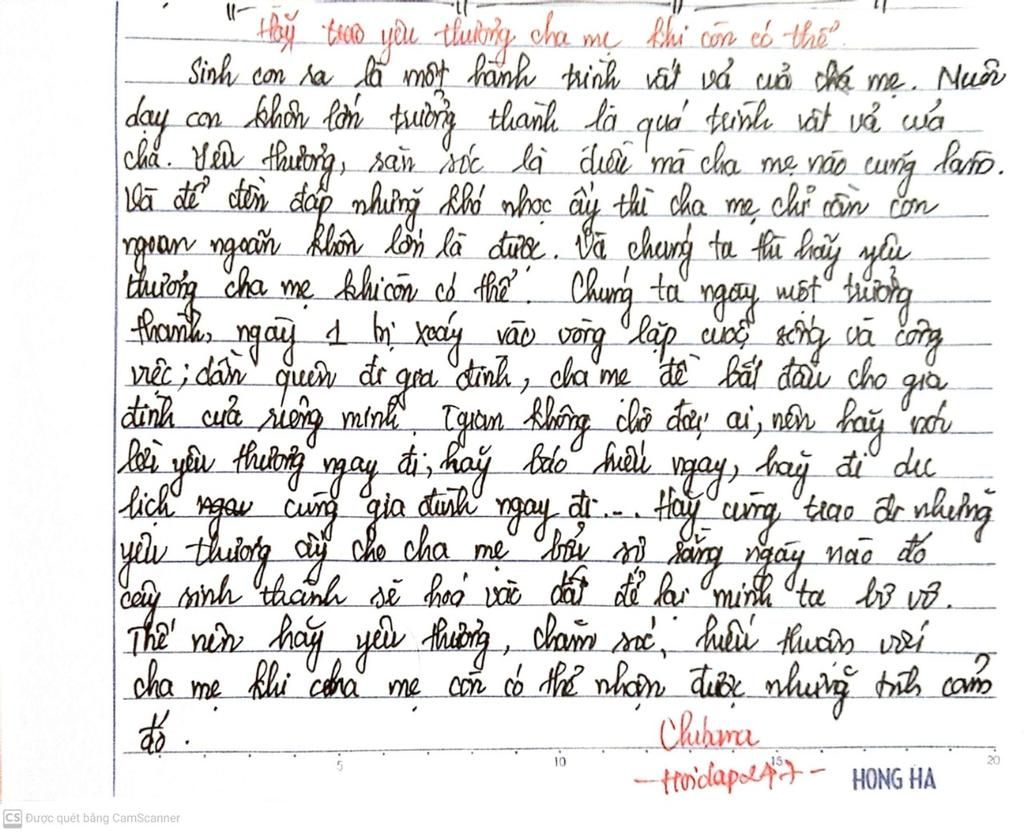 Hãy trao yêu thương cha mẹ khi còn có thể.
Sinh con ra là một hành trình vất vả của cha mẹ. Nuôi
dạy con khôn lớn trưởng thành là quá trình vất vả của
cha. Yêu thương, săn sóc là điều mà cha mẹ nào cũng làm.
Và để đền đáp những khó nhọc ấy thì cha mẹ chỉ cần con
ngoan ngoãn khôn lớn là được. Và chúng ta thì hãy yêu
thương cha mẹ khi còn có thể. Chúng ta ngày một trưởng
thành, ngày 1 bị xoáy vào vòng lặp cuộc sống và công
việc; dần quên đi gia đình, cha mẹ để bắt đầu cho gia
đình của riêng mình. Tgian không chờ đợi ai, nên hãy nói
lời yêu thương ngay đi, hãy báo hiếu ngay, hãy đi du
lịch cùng gia đình ngay đi... Hãy cùng trao đi những
yêu thương ấy cho cha mẹ bởi sợ rằng ngày nào đó
cây sinh thành sẽ hoá vào đất để lại mình ta bơ vơ.
Thế nên hãy yêu thương, chăm sóc, hiếu thuận với
cha mẹ khi cha mẹ còn có thể nhận được những tình cảm
đó.
Chuhma
-Hoidap247-
5 10 15 20
HONG HA
CS Được quét bằng CamScanner